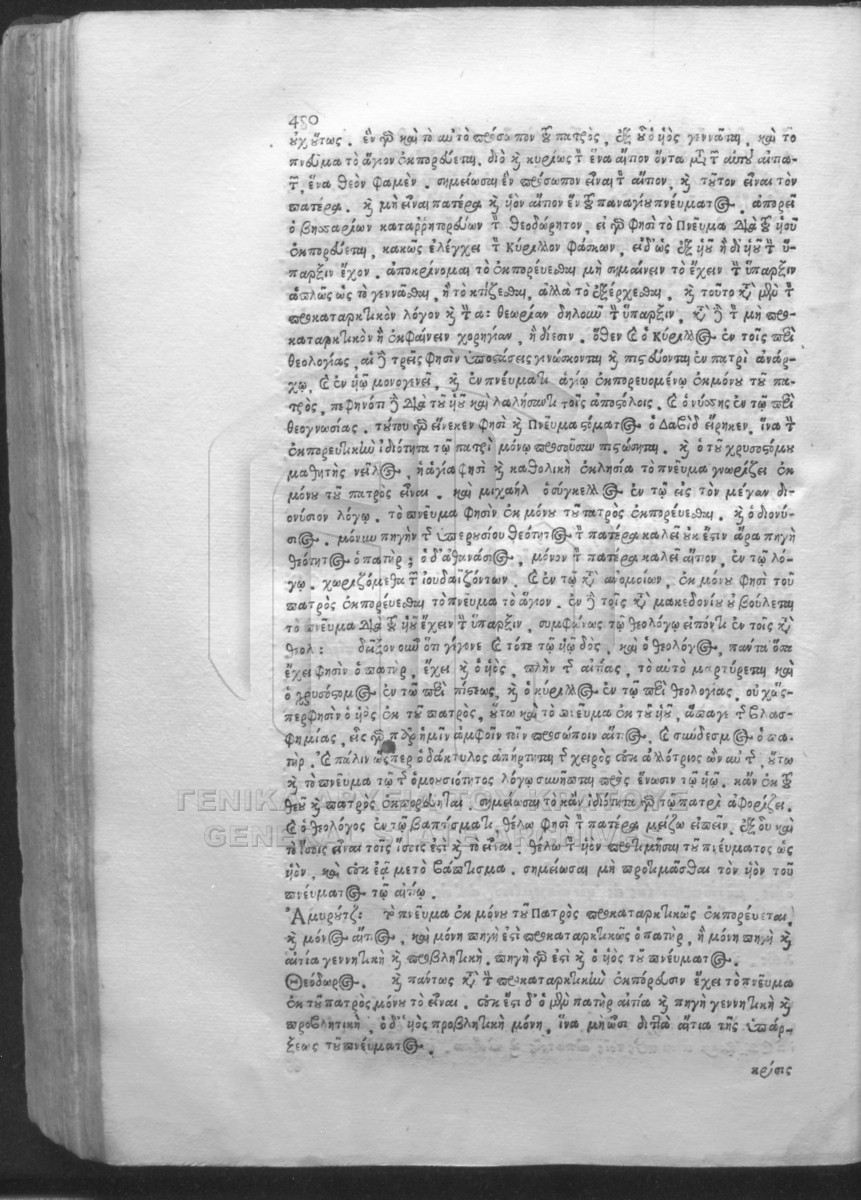 450
οὐχ οὕτως. ἓν γὰρ καὶ τὸ αὐτὸ πρόσωπον τοῦ πατρὸς, ἐξ οὗ ὁ υἱὸς γεννᾶται, καὶ τὸ
πνεῦμα τὸ ἅγιον ἐκπορεύεται, διὸ καὶ κυρίως τὸν ἕνα αἴτιον ὄντα μετὰ τῶν αὐτοῦ αἰτια-
τῶν, ἕνα θεὸν φαμέν. σημείωσαι ἓν πρόσωπον εἶναι τὸν αἴτιον, καὶ τοῦτον εἶναι τὸν
πατέρα. καὶ μὴ εἶναι πατέρα καὶ υἱὸν αἴτιον ἓν τοῦ παναγίου πνεύματος. ἀπορεῖ
ὁ βησσαρίων καταρρητορεύων τὸν Θεοδώρητον, εἰ γὰρ φησὶ τὸ Πνεῦμα διὰ τοῦ υἱοῦ
ἐκπορεύεται, κακῶς ἐλέγχει τὸν Κύριλλον φάσκων, εἰ δ' ὡς ἐξ υἱοῦ ἢ δι' υἱοῦ τὴν ὕ-
παρξιν ἔχον. ἀποκρίνομαι τὸ ἐκπορεύεσθαι μὴ σημαίνειν τὸ ἔχειν τὴν ὕπαρξιν
ἁπλῶς ὡς τὸ γεννᾶσθαι, ἢ τὸ κτίζεσθαι, ἀλλὰ τὸ ἐξέρχεσθαι. καὶ τοῦτο κατὰ μὲν τὸν
προκαταρκτικὸν λόγον καὶ τὴν α: θεωρίαν δηλοῦν τὴν ὕπαρξιν, κατὰ δὲ τὸν μὴ προ-
καταρκτικὸν ἢ ἐκφαίνειν χορηγίαν, ἢ δίεσιν. ὅθεν καὶ ὁ Κύριλλος ἐν τοῖς περὶ
θεολογίας, αἱ δὲ τρεῖς φησὶν ὑποστάσεις γινώσκονται καὶ πιστεύονται ἐν πατρὶ ἀνάρ-
χῳ, καὶ ἐν υἱῷ μονογενεῖ, καὶ ἐν πνεύματι ἁγίῳ ἐκπορευομένῳ ἐκ μόνου τοῦ πα-
τρὸς, πεφηνότι δὲ διὰ τοῦ υἱοῦ καὶ λαλήσαντι τοῖς ἀποστόλοις. καὶ ὁ νύσσης ἐν τῷ περὶ
θεογνωσίας. τούτου γὰρ εἵνεκεν φησὶ καὶ Πνεῦμα στόματος ὁ Δαβὶδ εἴρηκεν, ἵνα τὴν
ἐκπορευτικὴν ἰδιότητα τῷ πατρὶ μόνῳ προσοῦσαν πιστώσηται. καὶ ὁ τοῦ χρυσοστόμου
μαθητὴς νεῖλος, ἡ ἁγία φησὶ καὶ καθολικὴ ἐκλησία τὸ πνεῦμα γνωρίζει ἐκ
μόνου τοῦ πατρὸς εἶναι. καὶ μιχαὴλ ὁ σύγκελλος ἐν τῷ εἰς τὸν μέγαν δι-
ονύσιον λόγῳ. τὸ πνεῦμα φησὶν ἐκ μόνου τοῦ πατρὸς ἐκπορεύεσθαι. καὶ ὁ διονύ-
σιος. μόνην πηγὴν τῆς ὑπερουσίου θεότητος τὸν πατέρα καλεῖ οὐκ ἔστιν ἄρα πηγὴ
θεότητος ὁ πατὴρ; ὁ δ' ἀθανάσιος, μόνον τὸν πατέρα καλεῖ αἴτιον, ἐν τῷ λό-
γῳ. χωριζόμεθα τῶν ἰουδαϊζόντων. καὶ ἐν τῷ κατὰ ἀνομοίων, ἐκ μόνου φησὶ τοῦ
πατρὸς ἐκπορεύεσθαι τὸ πνεῦμα τὸ ἅγιον. ἐν δὲ τοῖς κατὰ μακεδονίου οὐ βούλεται
τὸ πνεῦμα διὰ τοῦ υἱοῦ ἔχειν τὴν ὕπαρξιν, συμφώνως τῷ θεολόγῳ εἰπόντι ἐν τοῖς κατὰ
θεολ: δεῖξον οὖν ὅτι γέγονε καὶ τότε τῷ υἱῷ δὸς, καὶ ὁ θεολόγος, πάντα ὅσα
ἔχει φησὶν ὁ πατὴρ, ἔχει καὶ ὁ υἱὸς, πλὴν τῆς αἰτίας, τὸ αὐτὸ μαρτύρεται καὶ
ὁ χρυσόστομος ἐν τῷ περὶ πίστεως, καὶ ὁ κύριλλος ἐν τῷ περὶ θεολογίας, οὐχ ὥς-
περ φησὶν ὁ υἱὸς ἐκ τοῦ πατρὸς, οὕτω καὶ τὸ πνεῦμα ἐκ τοῦ υἱοῦ, ἄπαγε τῆς βλασ-
φημίας, εἷς γὰρ παρ' ἡμῖν ἀμφοῖν τοῖν προσώποιν αἴτιος, καὶ σύνδεσμος ὁ πα-
τὴρ. καὶ πάλιν ὥσπερ ὁ δάκτυλος ἀπήρτηται τῆς χειρὸς οὐκ ἀλλότριος ὢν αὐτῆς. οὕτω
καὶ τὸ πνεῦμα τῷ τῆς ὁμοουσιότητος λόγῳ συνῆπται πρὸς ἕνωσιν τῷ υἱῷ. κἂν ἐκ τοῦ
θεοῦ καὶ πατρὸς ἐκπορεύηται. σημείωσαι τὸ κἂν ἰδιότητα γὰρ τῷ πατρὶ ἀφορίζει.
καὶ ὁ θεολόγος ἐν τῷ βαπτίσματι, θέλω φησὶ τὸν πατέρα μείζω εἰπεῖν, ἐξ οὗ καὶ
τὸ ἴσοις εἶναι τοῖς ἴσοις ἐστὶ καὶ τὸ εἶναι. θέλω τὸν υἱὸν προτιμῆσαι τοῦ πνεύματος ὡς
υἱὸν, καὶ οὐκ ἐᾷ με τὸ βάπτισμα. σημείωσαι μὴ προτιμᾶσθαι τὸν υἱὸν τοῦ
πνεύματος τῷ αἰτίῳ.
Ἀμυρούτζ: τὸ πνεῦμα ἐκ μόνου τοῦ Πατρὸς προκαταρκτικῶς ἐκπορεύεται,
καὶ μόνος αἴτιος, καὶ μόνη πηγὴ ἐστὶ προκαταρκτικῶς ὁ πατὴρ, ἢ μόνη πηγὴ καὶ
αἰτία γεννητικὴ καὶ προβλητικὴ. πηγὴ γὰρ ἐστὶ καὶ ὁ υἱὸς τοῦ πνεύματος.
Θεόδωρος. καὶ πάντως κατὰ τὴν προκαταρκτικὴν ἐκπόρευσιν ἔχει τὸ πνεῦμα
ἐκ τοῦ πατρὸς μόνου τὸ εἶναι. οὐκ ἔστι δ' ὁ μὲν πατὴρ αἰτία καὶ πηγὴ γεννητικὴ καὶ
προβλητικὴ, ὁ δ' υἱὸς προβλητικὴ μόνη, ἵνα μὴ ὦσι διττὰ αἴτια τῆς ὑπάρ-
ξεως τοῦ πνεύματος.
κρίσις
ΓΕΝΙΚΑ
GENERAL